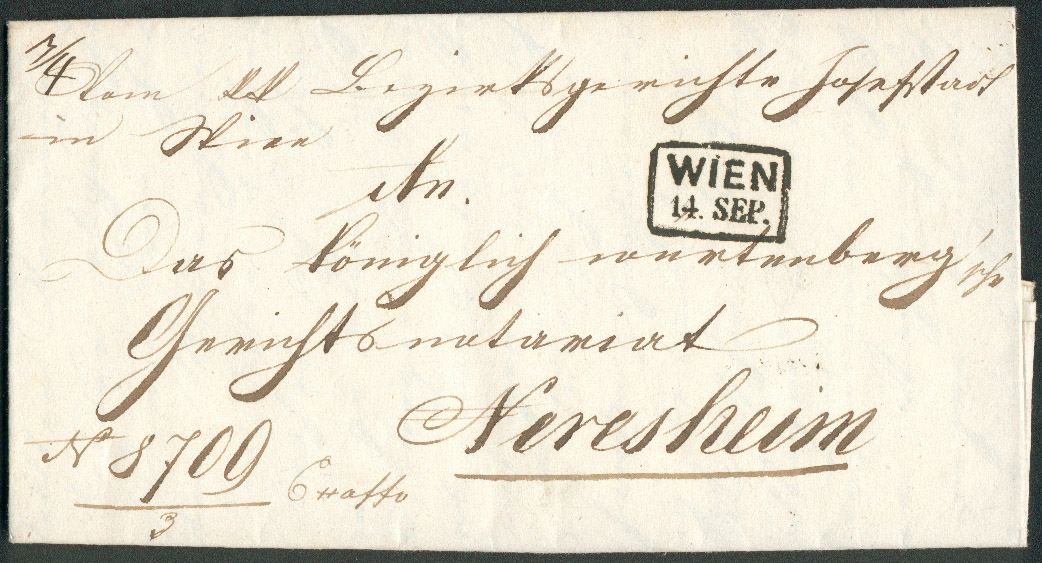 7/4
Vom kk Bezirksgerichte Josefstadt
in Wien
An.
WIEN
14. SEP.
Das königlich würtenberg'sche
Gerichtsnotariat
Neresheim
No 8709
3